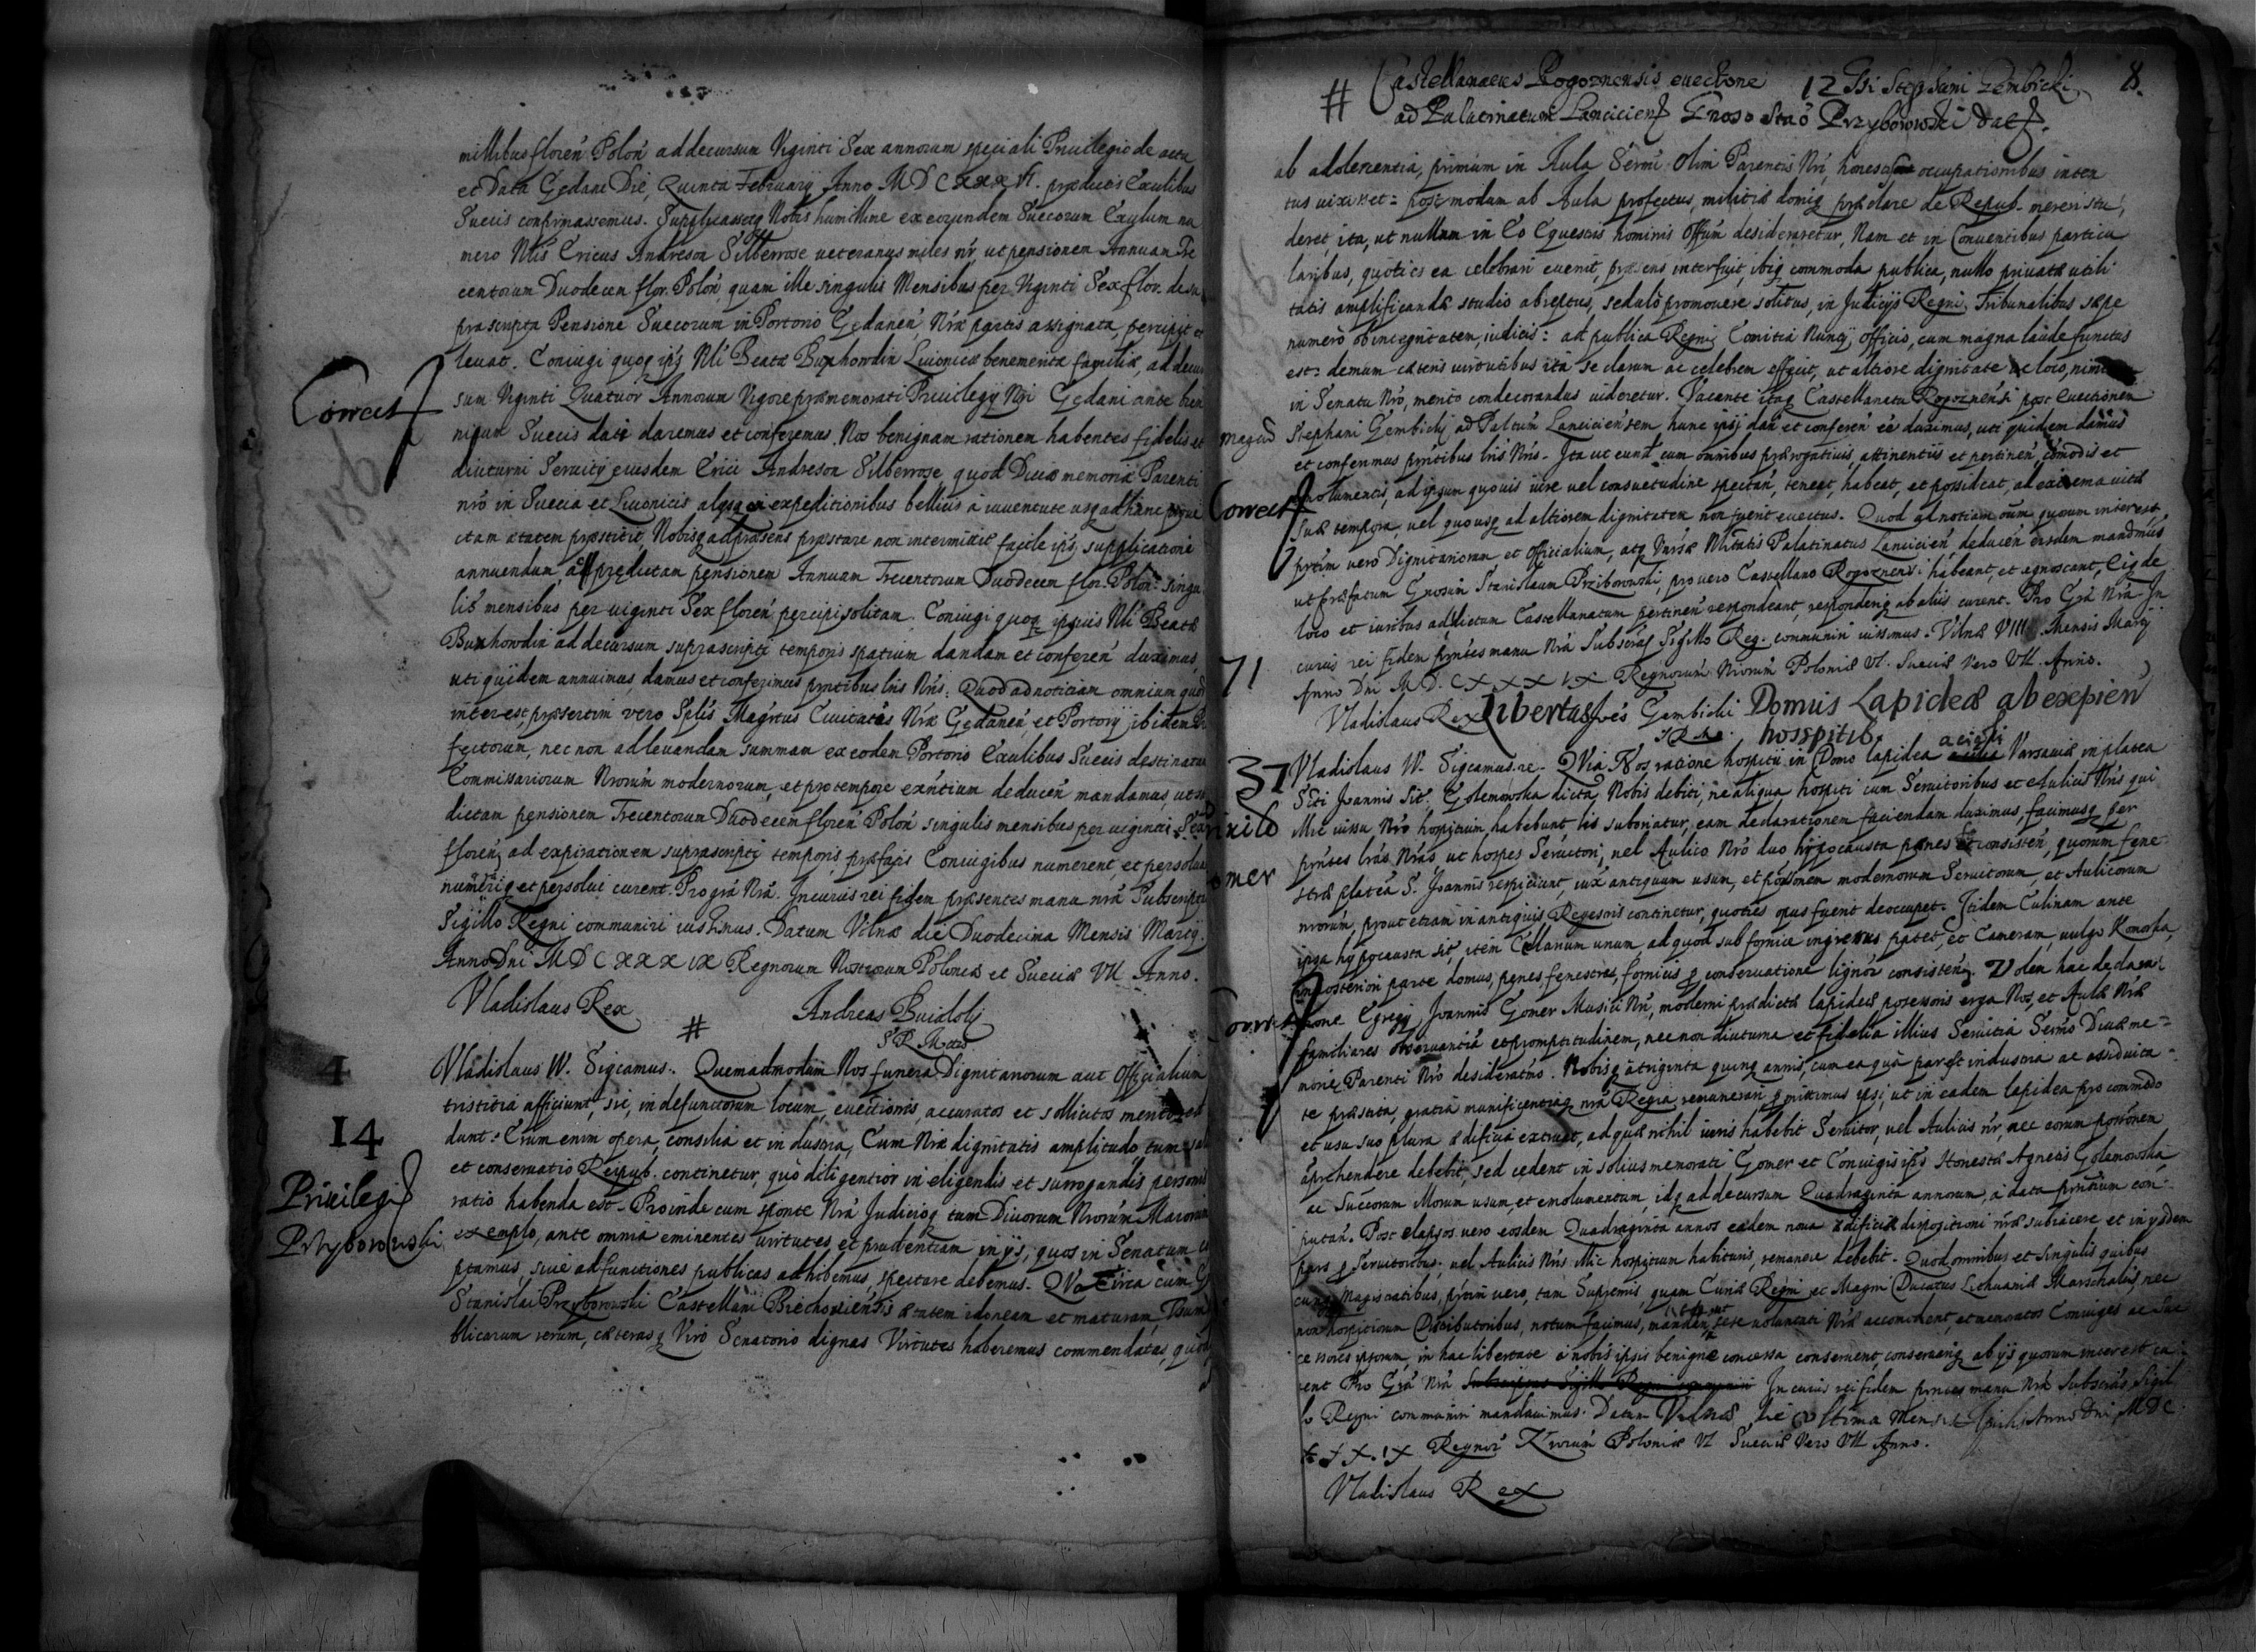 millibus floren̄ Polon̄ ad decursum Viginti Sex annorum speciali Priuilegio de actu
et Data Gedani Die, Quinta February Anno M D C XXX VI. prædictis Exulibus
Suecis confirmassemus. Supplicassetq Nobis humillime ex eorundem Suecorum Exulum nu
mero Nlis Ericus Andreson Silberrose veteranus miles nr̄, ut pensionem Annuam Tre
centorum Duodecem flor. Polon̄, quam ille singulis Mensibus per Viginti Sex flor. de su
prascripta Pensione Suecorum in Portorio Gedanen̄ Nræ partis assignata, percipit et
leuat. Coniugi quoq ipīs Nli Beatæ Buxhowdin Liuonicæ benemeritæ familiæ, ad decur
Correct
sum Viginti Quatuor Annorum Vigore præmemorati Priuilegij Nri Gedani ante bien
nium Suecis dati daremus et conferemus. Nos benignam rationem habentes fidelis et
diuturni Seruitij eiusdem Erici Andreson Silberrose, quod Diuæ memoriæ Parenti
nrō in Suecia et Liuonicis alysq expeditionibus bellicis à iuuentute usq ad hanc
ctam ætatem præstitit, Nobisq ad præsens præstare non intermittit facile ipīs supplicationi
annuendum, ac prędictam pensionem Annuam Trecentorum Duodecem flor. Polon̄. singu
lis mensibus per uiginti Sex floren̄ percipi solitam. Coniugi quoq ipsius Nli Beatæ
Buxhowdin ad decursum suprascripti temporis spatium dandam et conferen̄ duximus,
uti quidem annuimus, damus et conferimus prntibus lris Nris. Quod ad notitiam omnium quor
interest, præsertim vero Splis Magrtus Ciuitatis Nræ Gedanen̄, et Portorij ibidem
fectorum, nec non ad leuandam summam ex eodem Portorio Exulibus Suecis destinatam
Commissariorum Nrorum modernorum, et pro tempore exn̄tium deducen̄ mandamus, ut
dictam pensionem Trecentorum Duodecem floren̄ Polon̄ singulis mensibus per uiginti Sex
floren̄ ad expirationem suprascripti temporis, præfatis Coniugibus numerent, et persoluant
numeriq et persolui curent. Pro grā Nrā. In cuius rei fidem præsentes manu nrā Subscriptas
Sigillo Regni communiri iussimus. Datum Vilnæ die Duodecima Mensis Martij.
Anno Dni M D C XXX IX Regnorum Nostrorum Poloniæ et Sueciæ VII Anno.
Vladislaus Rex
#
4
14
Vladislaus W. Sigcamus. Quemadmodum Nos funera Dignitariorum aut Officialium
tristitia afficiunt, sic, in defunctorum locum, euectionis, accuratos et sollicitos
dunt. Erum enim opera, consilia et industria, Cum Nræ dignitatis amplitudo, tum
et conseruatio Reipub. continetur, quò diligentior in eligendis et surrogandis personis
Priuilegi
Przyborowski
ratio habenda est. Proinde cum sponte Nrā Judicioq tum Diuorum Nrorum Maiorum
exemplo, ante omnia eminentes virtutes et prudentiam in ijs, quos in Senatum
ptamus, siue ad functiones publicas adhibemus, spectare debemus. Quo circa cum
Stanislai Przyborowski Castellani Biechouiensis ætatem idoneam et maturam,
blicarum rerum, cæterasq Viro Senatorio dignas Virtutes haberemus commendatas,
# Castellanatus Rogoznensis euectione 12 Stephani Gembicki 8.
ad Palatinatum Lancicien̄ Gnoso Stāō Przyborowski
ab adolescentia, primum in Aula Sermi olim Parentis Nri, honestis occupationibus inten
tus uixisset: post modum ab Aula profectus, militiæ domiq præclare de Repub. mereri stu
deret, ita, ut nullum in Eo Equestris hominis Offūm desideraretur, Nam et in Conuentibus particu
laribus, quoties ea celebrari euenit, præsens interfuit, ibiq commoda publica, nullo priuatæ utili
tatis amplificandæ studio abreptus, sedulò promouere solitus, in Judicijs Regni Tribunalibus sæpe
numerò ob integritatem, iudicis: ad publica Regni Comitia Nuncij officio, cum magna laude functus
est: demum cæteris uirtutibus ita se clarum ac celebrem effecit, ut altiore dignitate ac loco,
in Senatu Nrō, merito condecorandus uideretur. Vacante itaq Castellanatu Rogoznensi post Euectionem
Stephani Gembickij ad Paltūm Lanciciensem hunc ipsi dan̄ et conferen̄ eē duximus, uti quidem damus
et conferimus prntibus lris Nris. Ita ut eund cum omnibus prærogatiuis, attinentijs et pertinen̄ comodis et
Correct
emolumentis, ad ipsum quouis iure uel consuetudine spectan̄, teneat, habeat, et possideat, ad extrema uitæ
suæ tempora, uel quousq ad altiorem dignitatem non fuerit euectus. Quod ad notitiam oūm quorum interest,
prtim vero Dignitariorum et Officialium, atq Vnīsæ Nlitatis Palatinatus Lancicien̄, deducen̄ eisdem mandmus
ut præfatum Gnosum Stanislaum Przyborowski, pro vero Castellano Rogoznensi habeant, et agnoscant, Eiq de
loco et iuribus ad dictum Castellanatum pertinen̄ respondeant, responderiq ab aliis curent. Pro Grā Nrā. In
71
cuius rei fidem prntes manu Nrā Subscras Sigillo Reg. communiri iussimus. Vilnæ VIII Mensis Martij
Anno Dni M. D. C X X X I X Regnorum Nrorum Poloniæ VI. Sueciæ Vero VII. Anno.
Vladislaus Rex Libertas Domus Lapideæ ab excipien̄
hosspitib.
37
Vladislaus W. Sigcamus. re. Quia Nos ratione hospitij in Domo lapidea Varsauiæ in platea
Scti Joannis sit. Golemowska dicta, Nobis debiti, ne aliqua hospiti cum Seruitoribus et Aulicis Nris qui
illic iussu Nrō hospitium habebunt lis suboriatur, eam declarationem faciendam duximus, facimusq per
prntes lrās Nrās ut hospes Seruitori, uel Aulico Nrō duo hypocausta penes se consisten̄, quorum fene
omer
stræ plateā S. Joannis respiciunt, iux antiquum usum, et porsonem modernorum Seruitorum et Aulicorum
nrorum, prout etiam in antiquis Regestris continetur, quoties opus fuerit deoccupet. Itidem Culinam ante
ipsa hypocausta sit, item Cellarium unum, ad quod sub fornice ingressus patet, et Cameram, uulgo Komorka,
in posteriori parte domus, penes fenestras, fornicis p conseruatione lignor consisten̄. Volen̄ hac declara
tione Egregij Joannis Gomer Musici Nri, moderni prædictæ lapideæ possessoris erga Nos, et Aulæ Nræ
familiares obseruantiā et promptitudinem, nec non diuturna et fidelia illius Seruitia Sermo Diuæ me
moriæ Parenti Nrō desideratmo. Nobisq à triginta quinq annis, cum ea quā par est industria ac assiduita
te præstita, gratia munificentiaq nrā Regia remunerari pmittimus ipsi, ut in eadem lapidea pro commodo
et usu suo plura ædificia extruat, ad quæ nihil iuris habebit Seruitor, uel Aulicus nr, nec eorum porsonem
apræhendere debebit, sed cedent in solius memorati Gomer et Coniugis ipīs Honestæ Agnetis Golemowska,
ac Succorum illorum usum, et emolumentum, idq ad decursum Quadraginta annorum, à data prntium con
putan̄. Post elapsos uero eosdem Quadraginta annos eadem noua ædificia dispositioni nræ subiacere et in ysdem
pars p Seruitoribus, uel Aulicis Nris illic hospitium habituris, remanere debebit. Quod omnibus et singulis quibus
Magistratibus, prtim uero, tam Supremis, quam Curiæ Regni et Magni Ducatus Lithuaniæ Marschalis, nec
non hospitiorum Distributoribus, notum facimus, manden̄, ut sese uoluntati Nræ accomodent, et memoratos Coniuges ac Suc
cessores ipsorum, in hac libertate à nobis ipsis benigne concessa conseruent, conseruariq ab ijs quorum interest cu
rent Pro Grā Nrā In cuius rei fidem prntes manu Nrā Subscras Sigil
lo Regni communiri mandauimus. Datum Vilnæ, die Vltima Mensis Aprilis Anno Dni M D C
X X X. I X Regnor Nrorum Poloniæ VI Sueciæ Vero VII Anno.
Vladislaus Rex